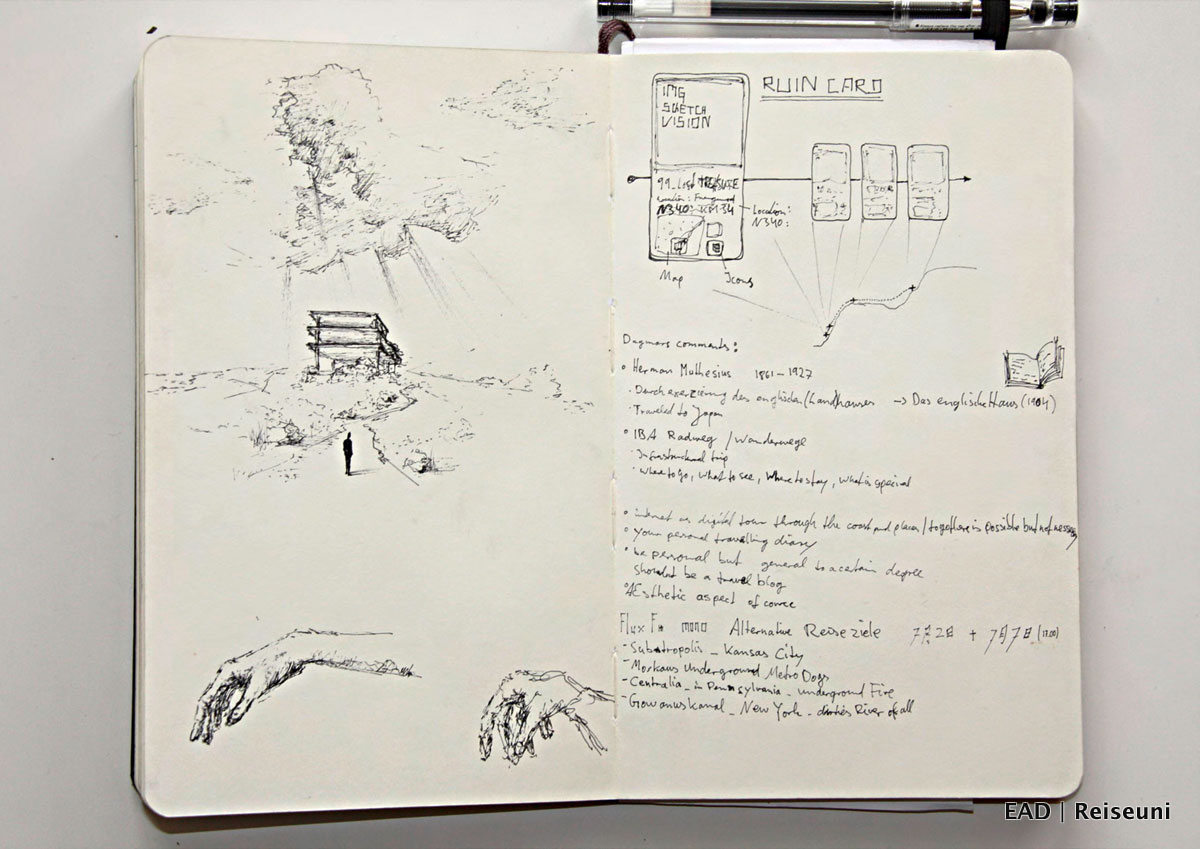 RUIN CARD
IMG
SKETCH
VISION
99_Lost
Location:
N340: KM 34
Location:
N340:
Map
Icons
Dagmars comments:
Herman Muthesius 1861 – 1927
Durchexerzierung des englischen Landhauses → Das englische Haus (1904)
Traveled to Japan
IBA Radweg / Wanderwege
Infrastructural trip
where to go, what to see, where to stay, what is special
internet as digital tour through the coast and places / together is possible but not necessary
your personal travelling diary
be personal but general to a certain degree
Shouldnt be a travel blog
AEsthetic aspect of corse
Flux Fm mono Alternative Reiseziele 7月2日 + 7月7日 (17.00)
- Subtropolis _ Kansas City
- Moskaus Underground Metro Dogs
- Centralia _ in Pennsylvania _ underground Fire
- Gowanuskanal _ New York - River of all
EAD | Reiseuni